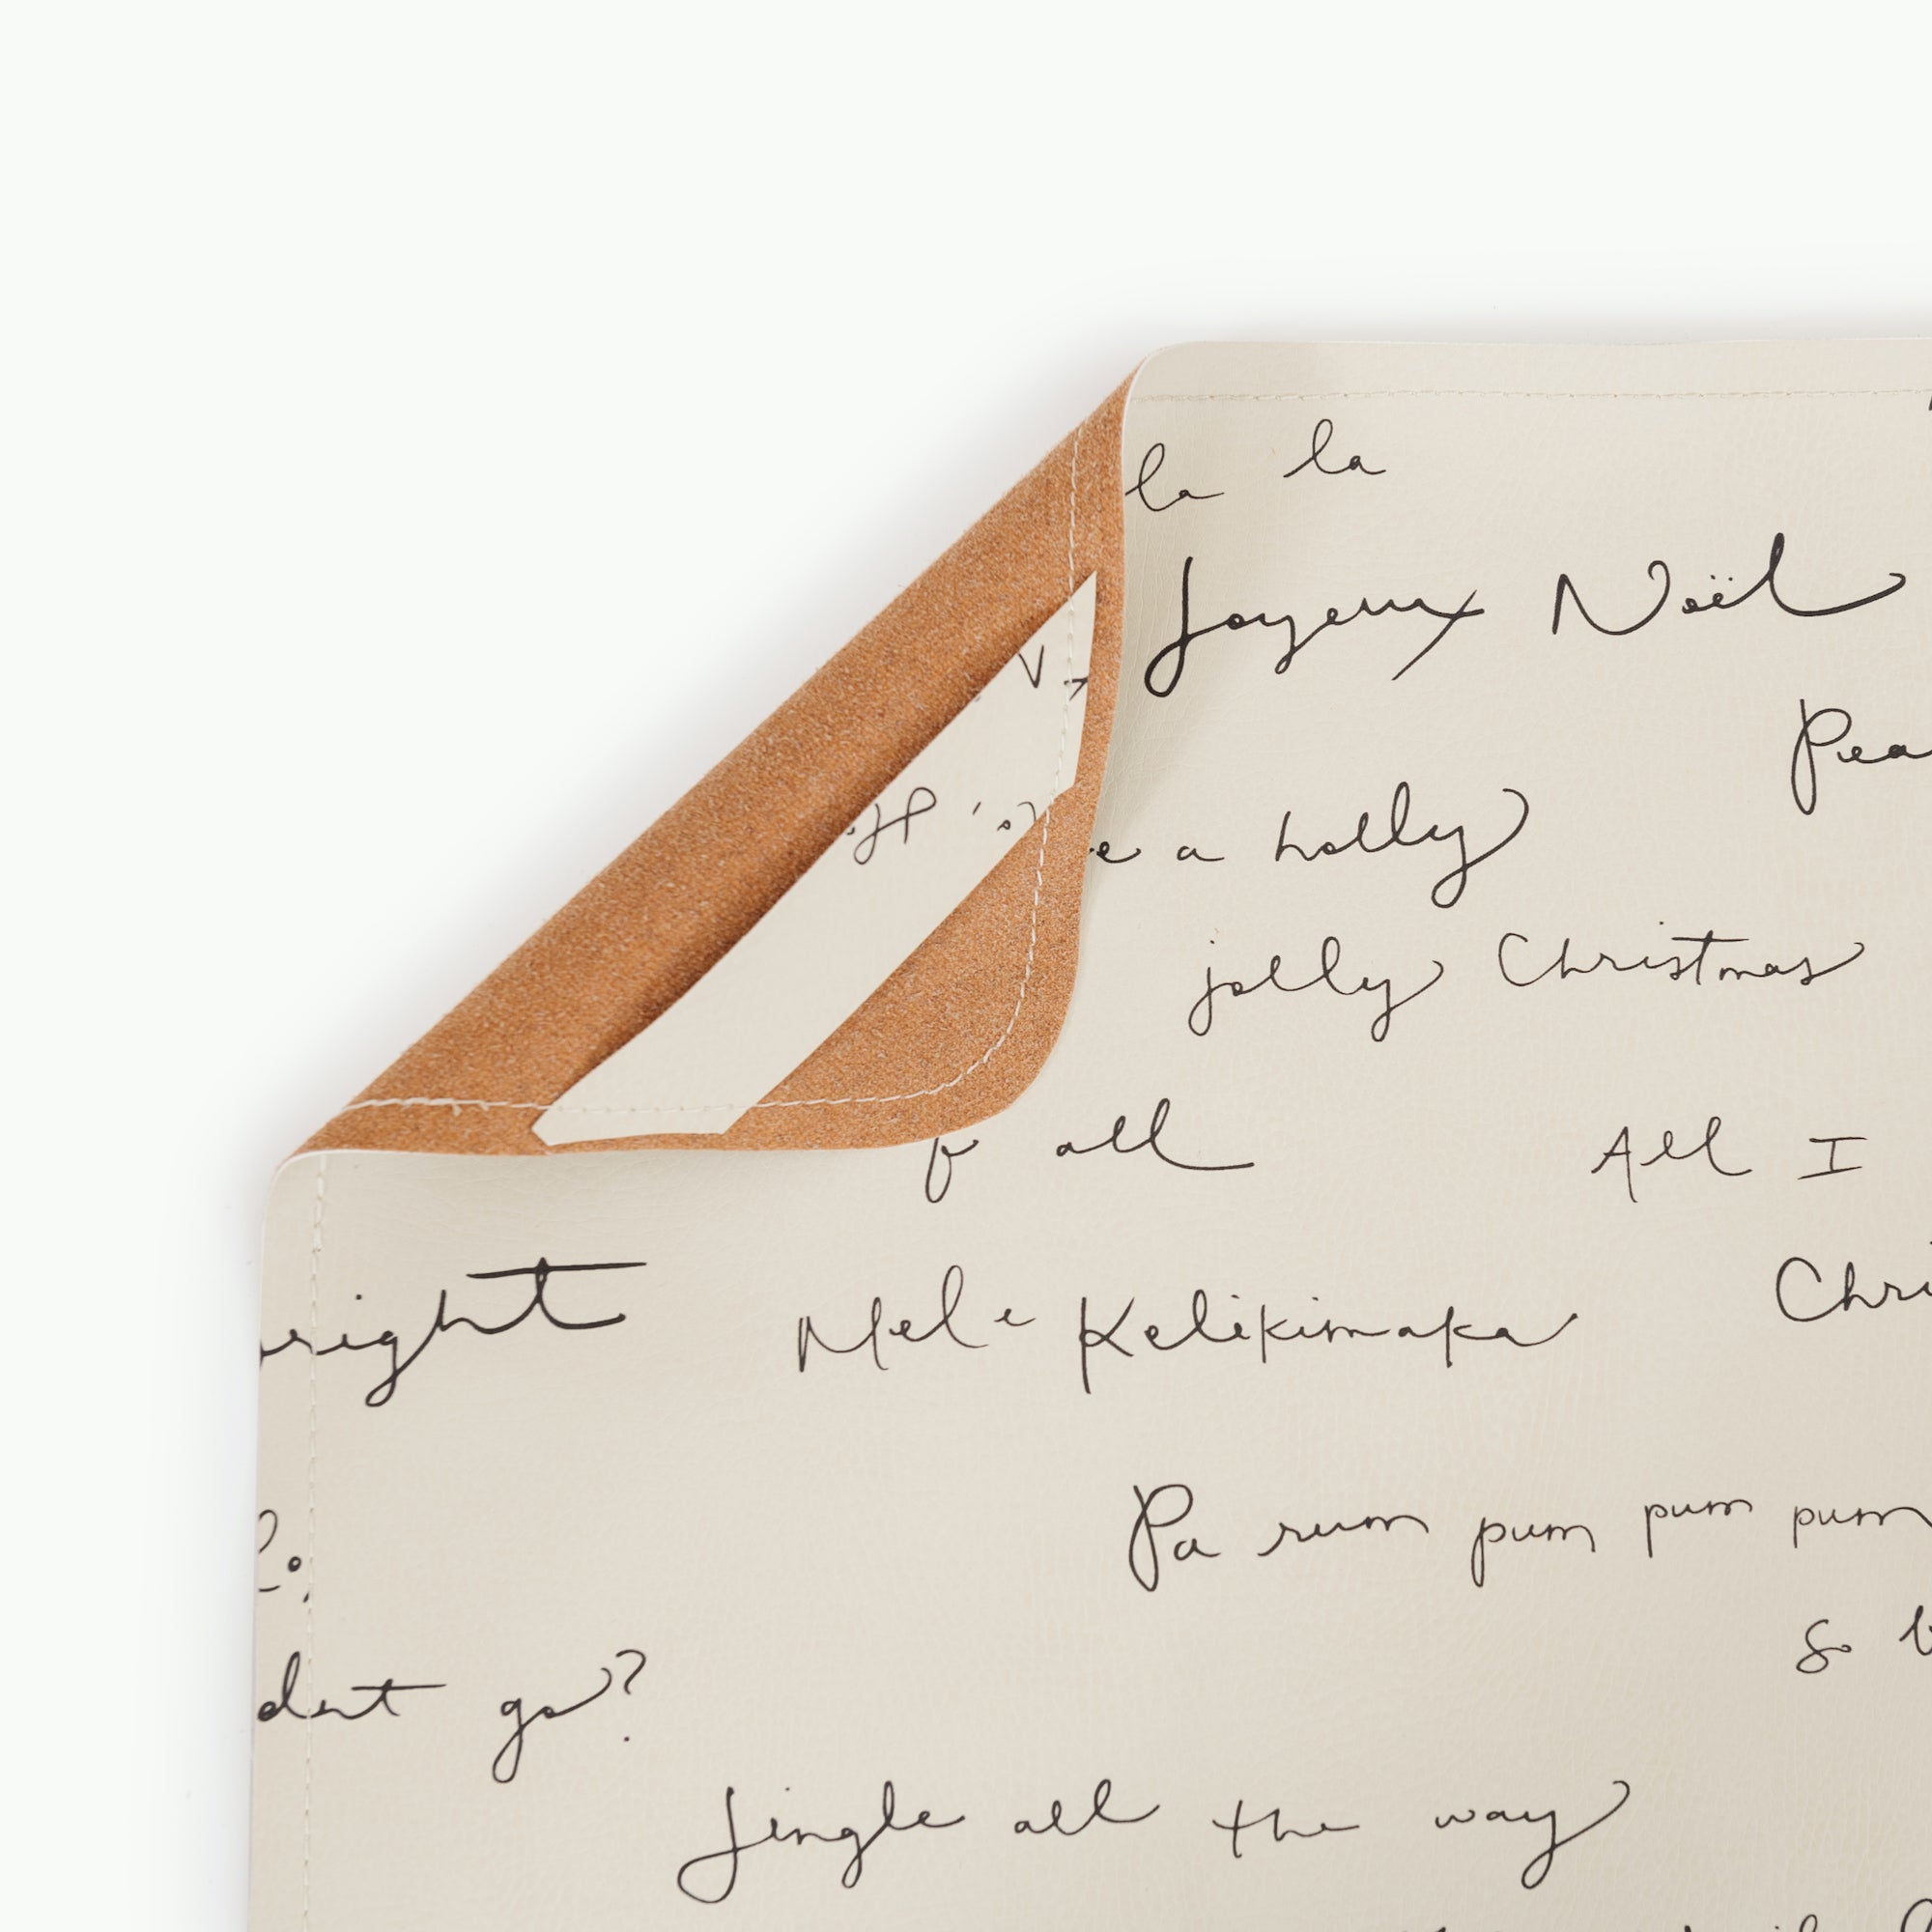 la la
Joyeux Noël
a holly
jolly Christmas
all All I
Mele Kelikimaka
Pa rum pum pum pum
so
go?
Jingle all the way